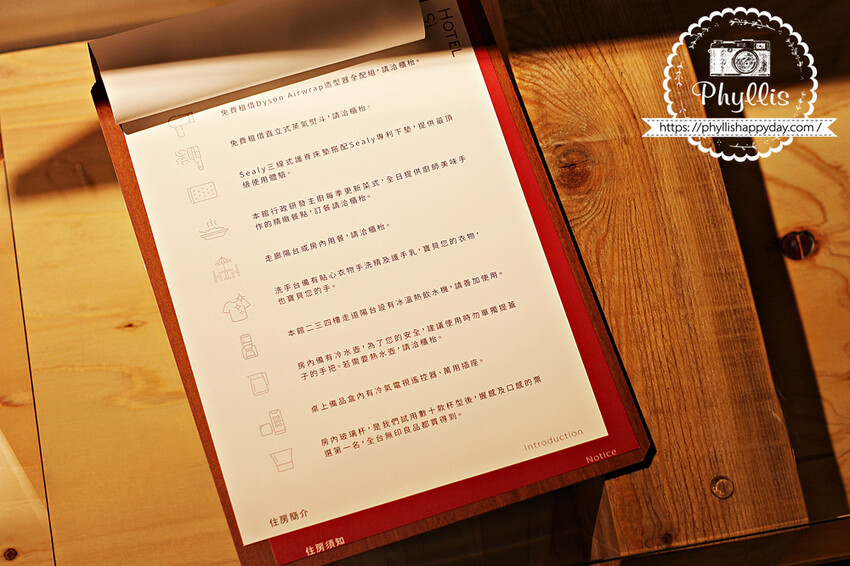 HOTEL
Si
免費租借Dyson Airwrap造型器全配組，請洽櫃枱。
免費租借直立式蒸氣熨斗，請洽櫃枱。
Sealy三線式護脊床墊搭配Sealy專利下墊，提供最頂
級使用體驗。
本館行政研發主廚每季更新菜式，全日提供廚師美味手
作的精緻餐點，訂餐請洽櫃枱。
走廊陽台或房內用餐，請洽櫃枱。
洗手台備有貼心衣物手洗精及護手乳，寶貝您的衣物，
也寶貝您的手。
本館二三四樓走道陽台設有冰溫熱飲水機，請善加使用。
房內備有冷水壺，為了您的安全，建議使用時勿單獨提蓋
子的手把。若需要熱水壺，請洽櫃枱。
桌上備品盒內有冷氣電視搖控器、萬用插座。
房內玻璃杯，是我們試用數十款杯型後，握感及口感的票
選第一名，全台無印良品都買得到。
Introduction
Notice
住房簡介
住房須知
Phyllis
https://phyllishappyday.com/